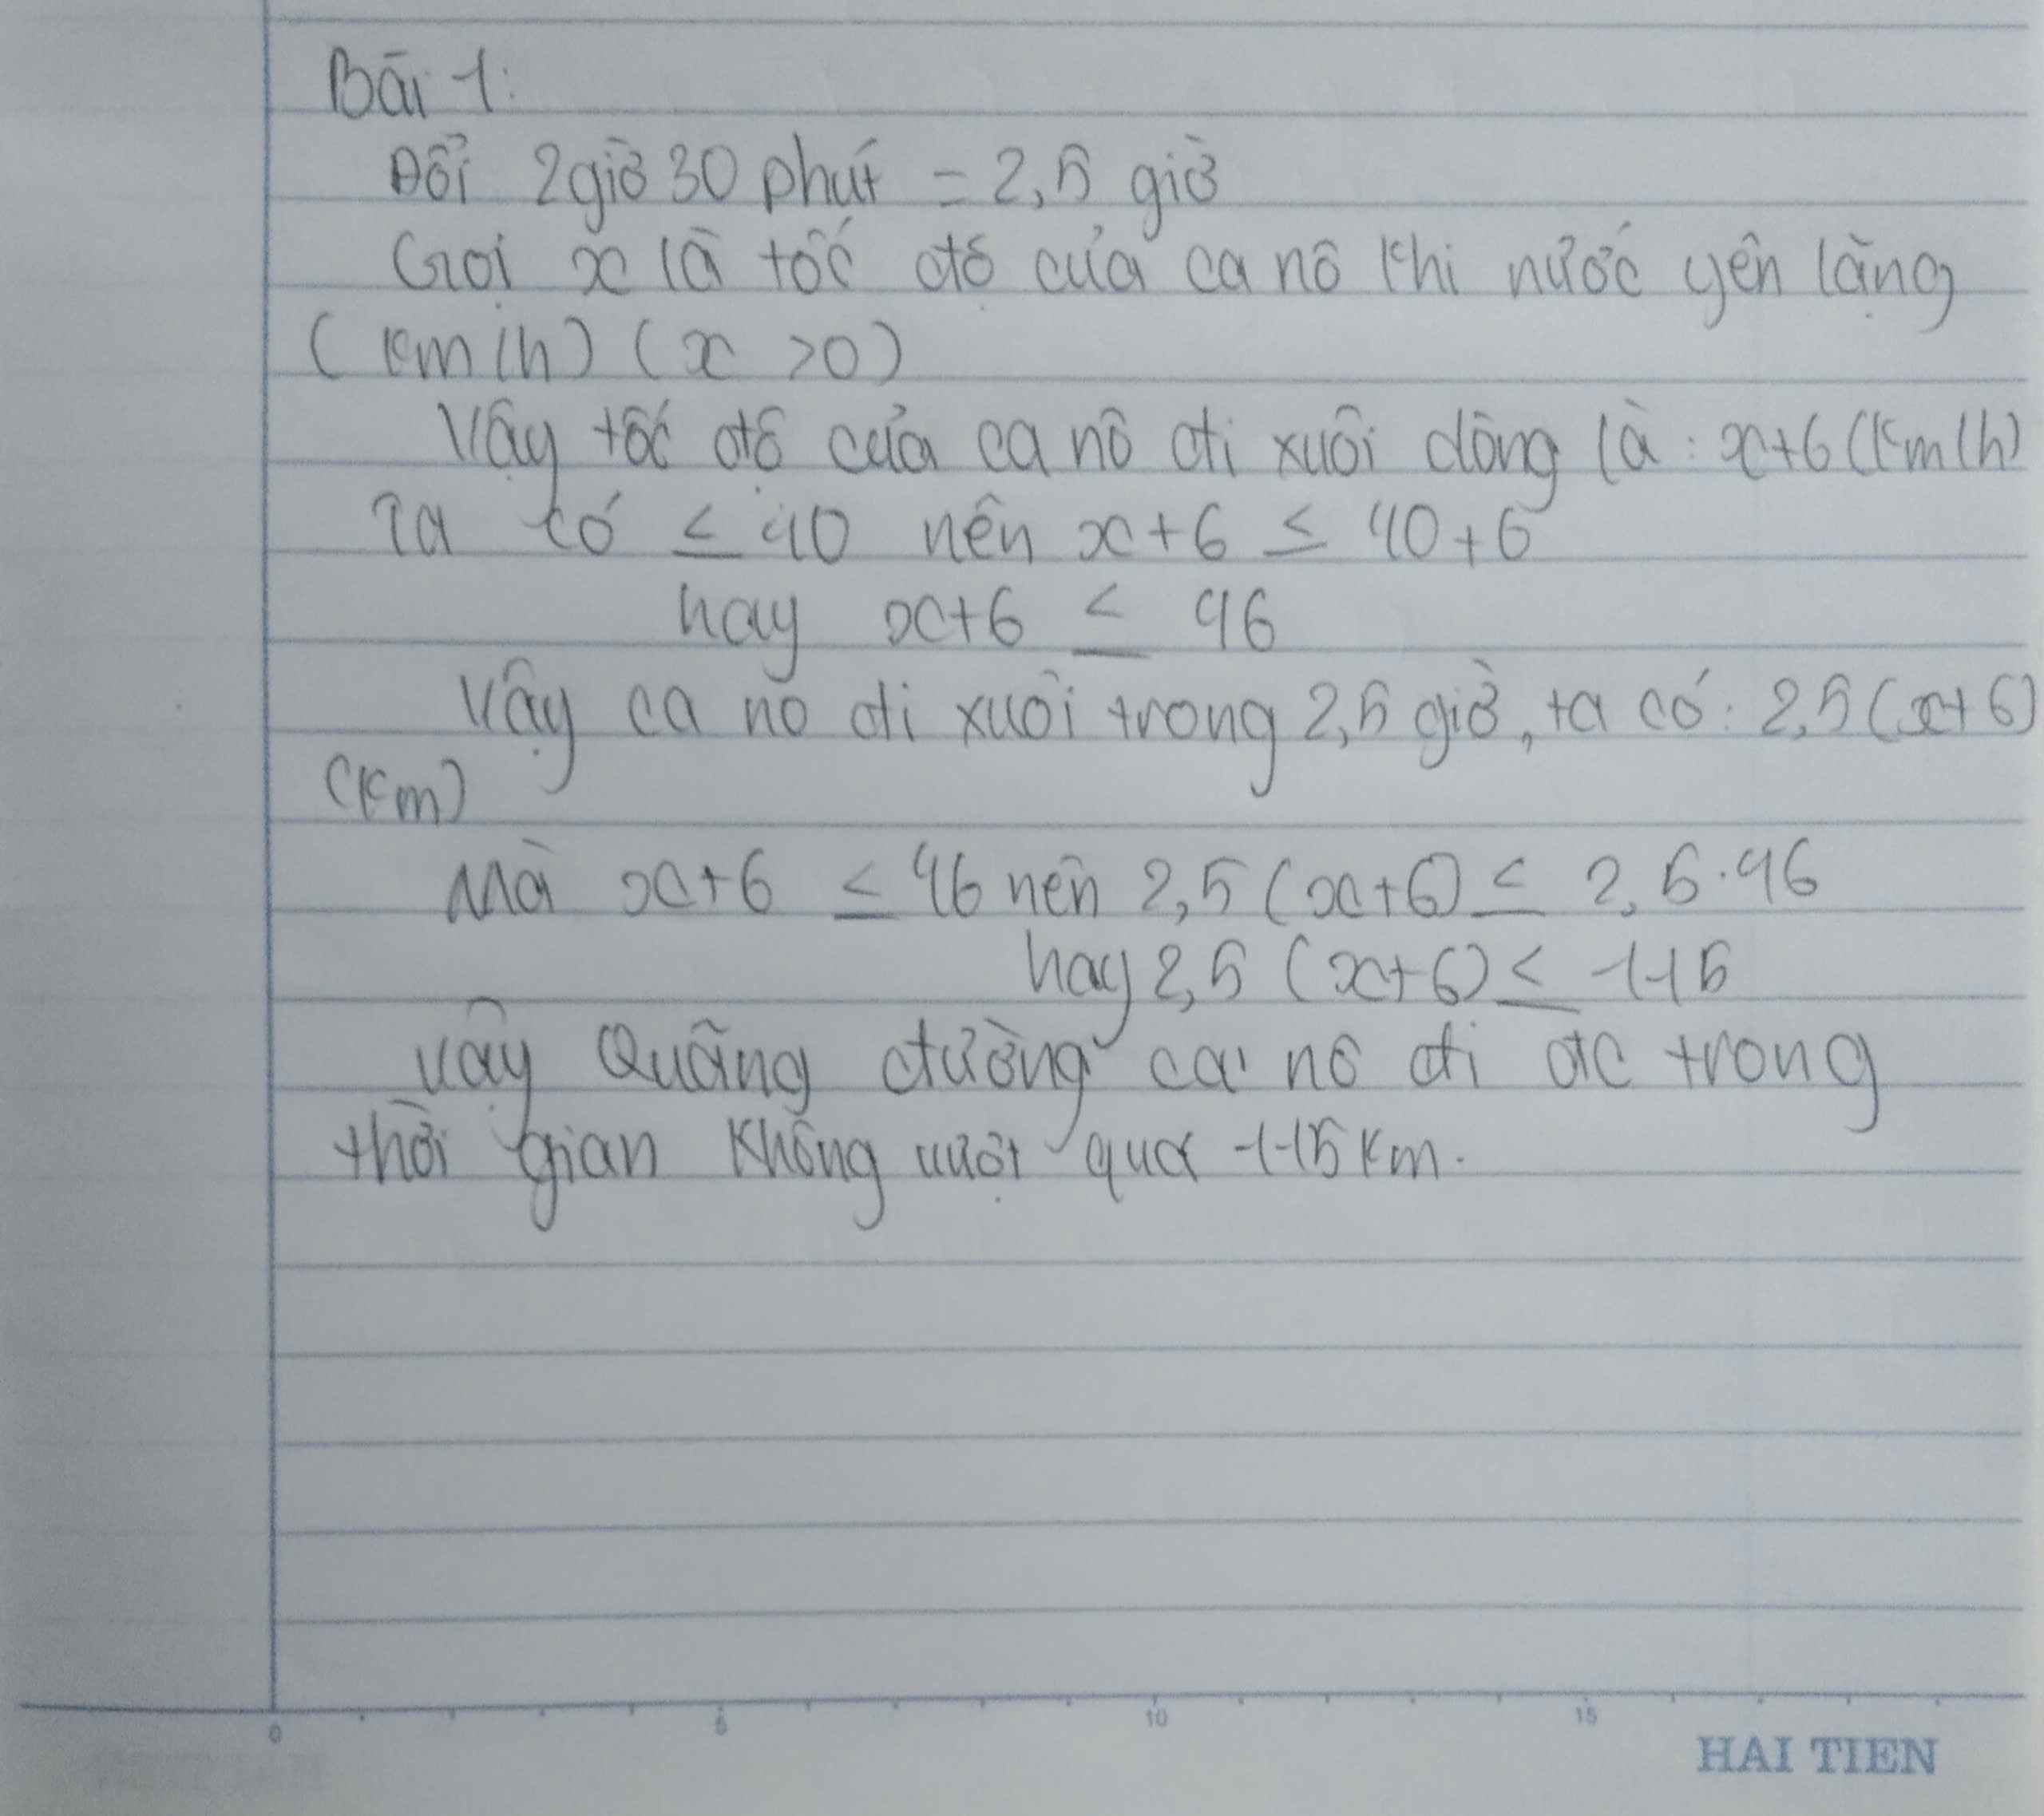 Bài 1:
Đổi 2giờ 30 phút = 2,5 giờ
Gọi x là tốc độ của ca nô khi nước yên lặng
(km/h) (x >0)
Vậy tốc độ của ca nô đi xuôi dòng là: x+6 (km/h)
Ta có ≤ 40 nên x+6 ≤ 40+6
hay x+6 ≤ 46
Vậy ca nô đi xuôi trong 2,5 giờ, ta có: 2,5(x+6)
(km)
Mà x+6 ≤ 46 nên 2,5(x+6) ≤ 2,5.46
hay 2,5 (x+6) ≤ 115
Vậy Quãng đường ca nô đi đc trong
thời gian không vượt quá 115 km.
0 5 10 15
HAI TIEN